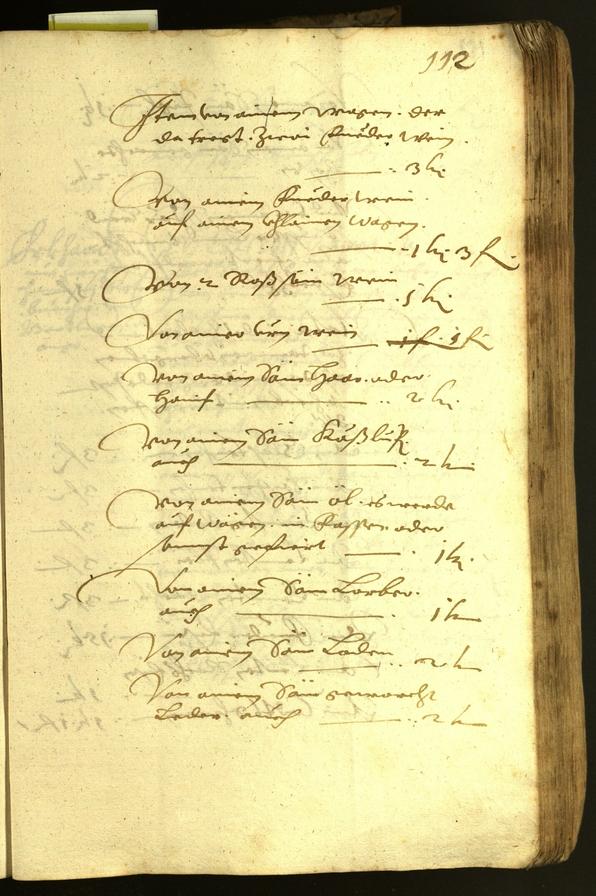 112
Item von ainem Wagen. der
da tregt. zwai Fueder Wein.
3 kr.
Von ainem Fueder wein.
auf ainem khlainen Wagen.
1 kr. 3 fr.
Von 2 Roß sam wein
5 kr.
Von ainer Urn wein 1 fr.
Von ainem Sam Haar. oder
Hanif 2 kr.
Von ainem Sam
auch 2 kr
Von ainem Sam öl. es werde
auf Wägen. in Vassen oder
sunst gefiert 1 kr.
Von ainem Sam Lorber.
auch 1 kr
Von ainem Sam Loden
2 kr
Von ainem Sam geworcht
Leder. auch 2 kr